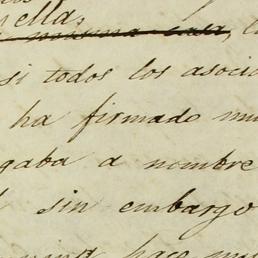 ella;
misma casa, l
si todos los asoci
ha firmado mu
gaba a nombre
sin embargo
hace mu